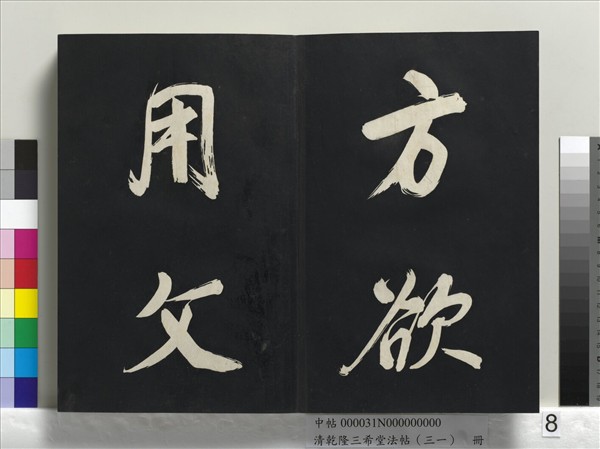 方欲
用文
中帖 000031N000000000
清乾隆三希堂法帖（三一） 冊
8